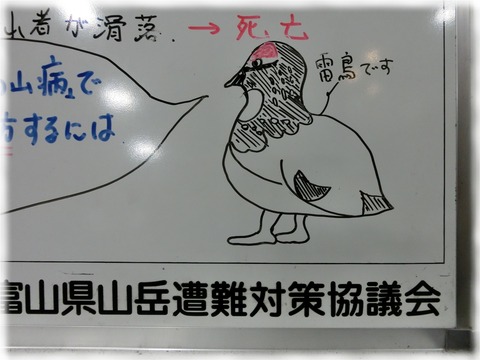 山者が滑落. → 死亡
山病で
雷鳥です
するには
富山県山岳遭難対策協議会